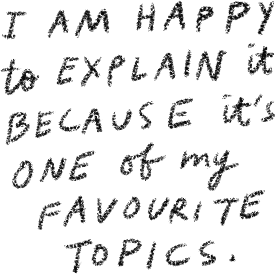 I AM HAPPY
to EXPLAIN it
BECAUSE it's
ONE of my
FAVOURITE
TOPICS.